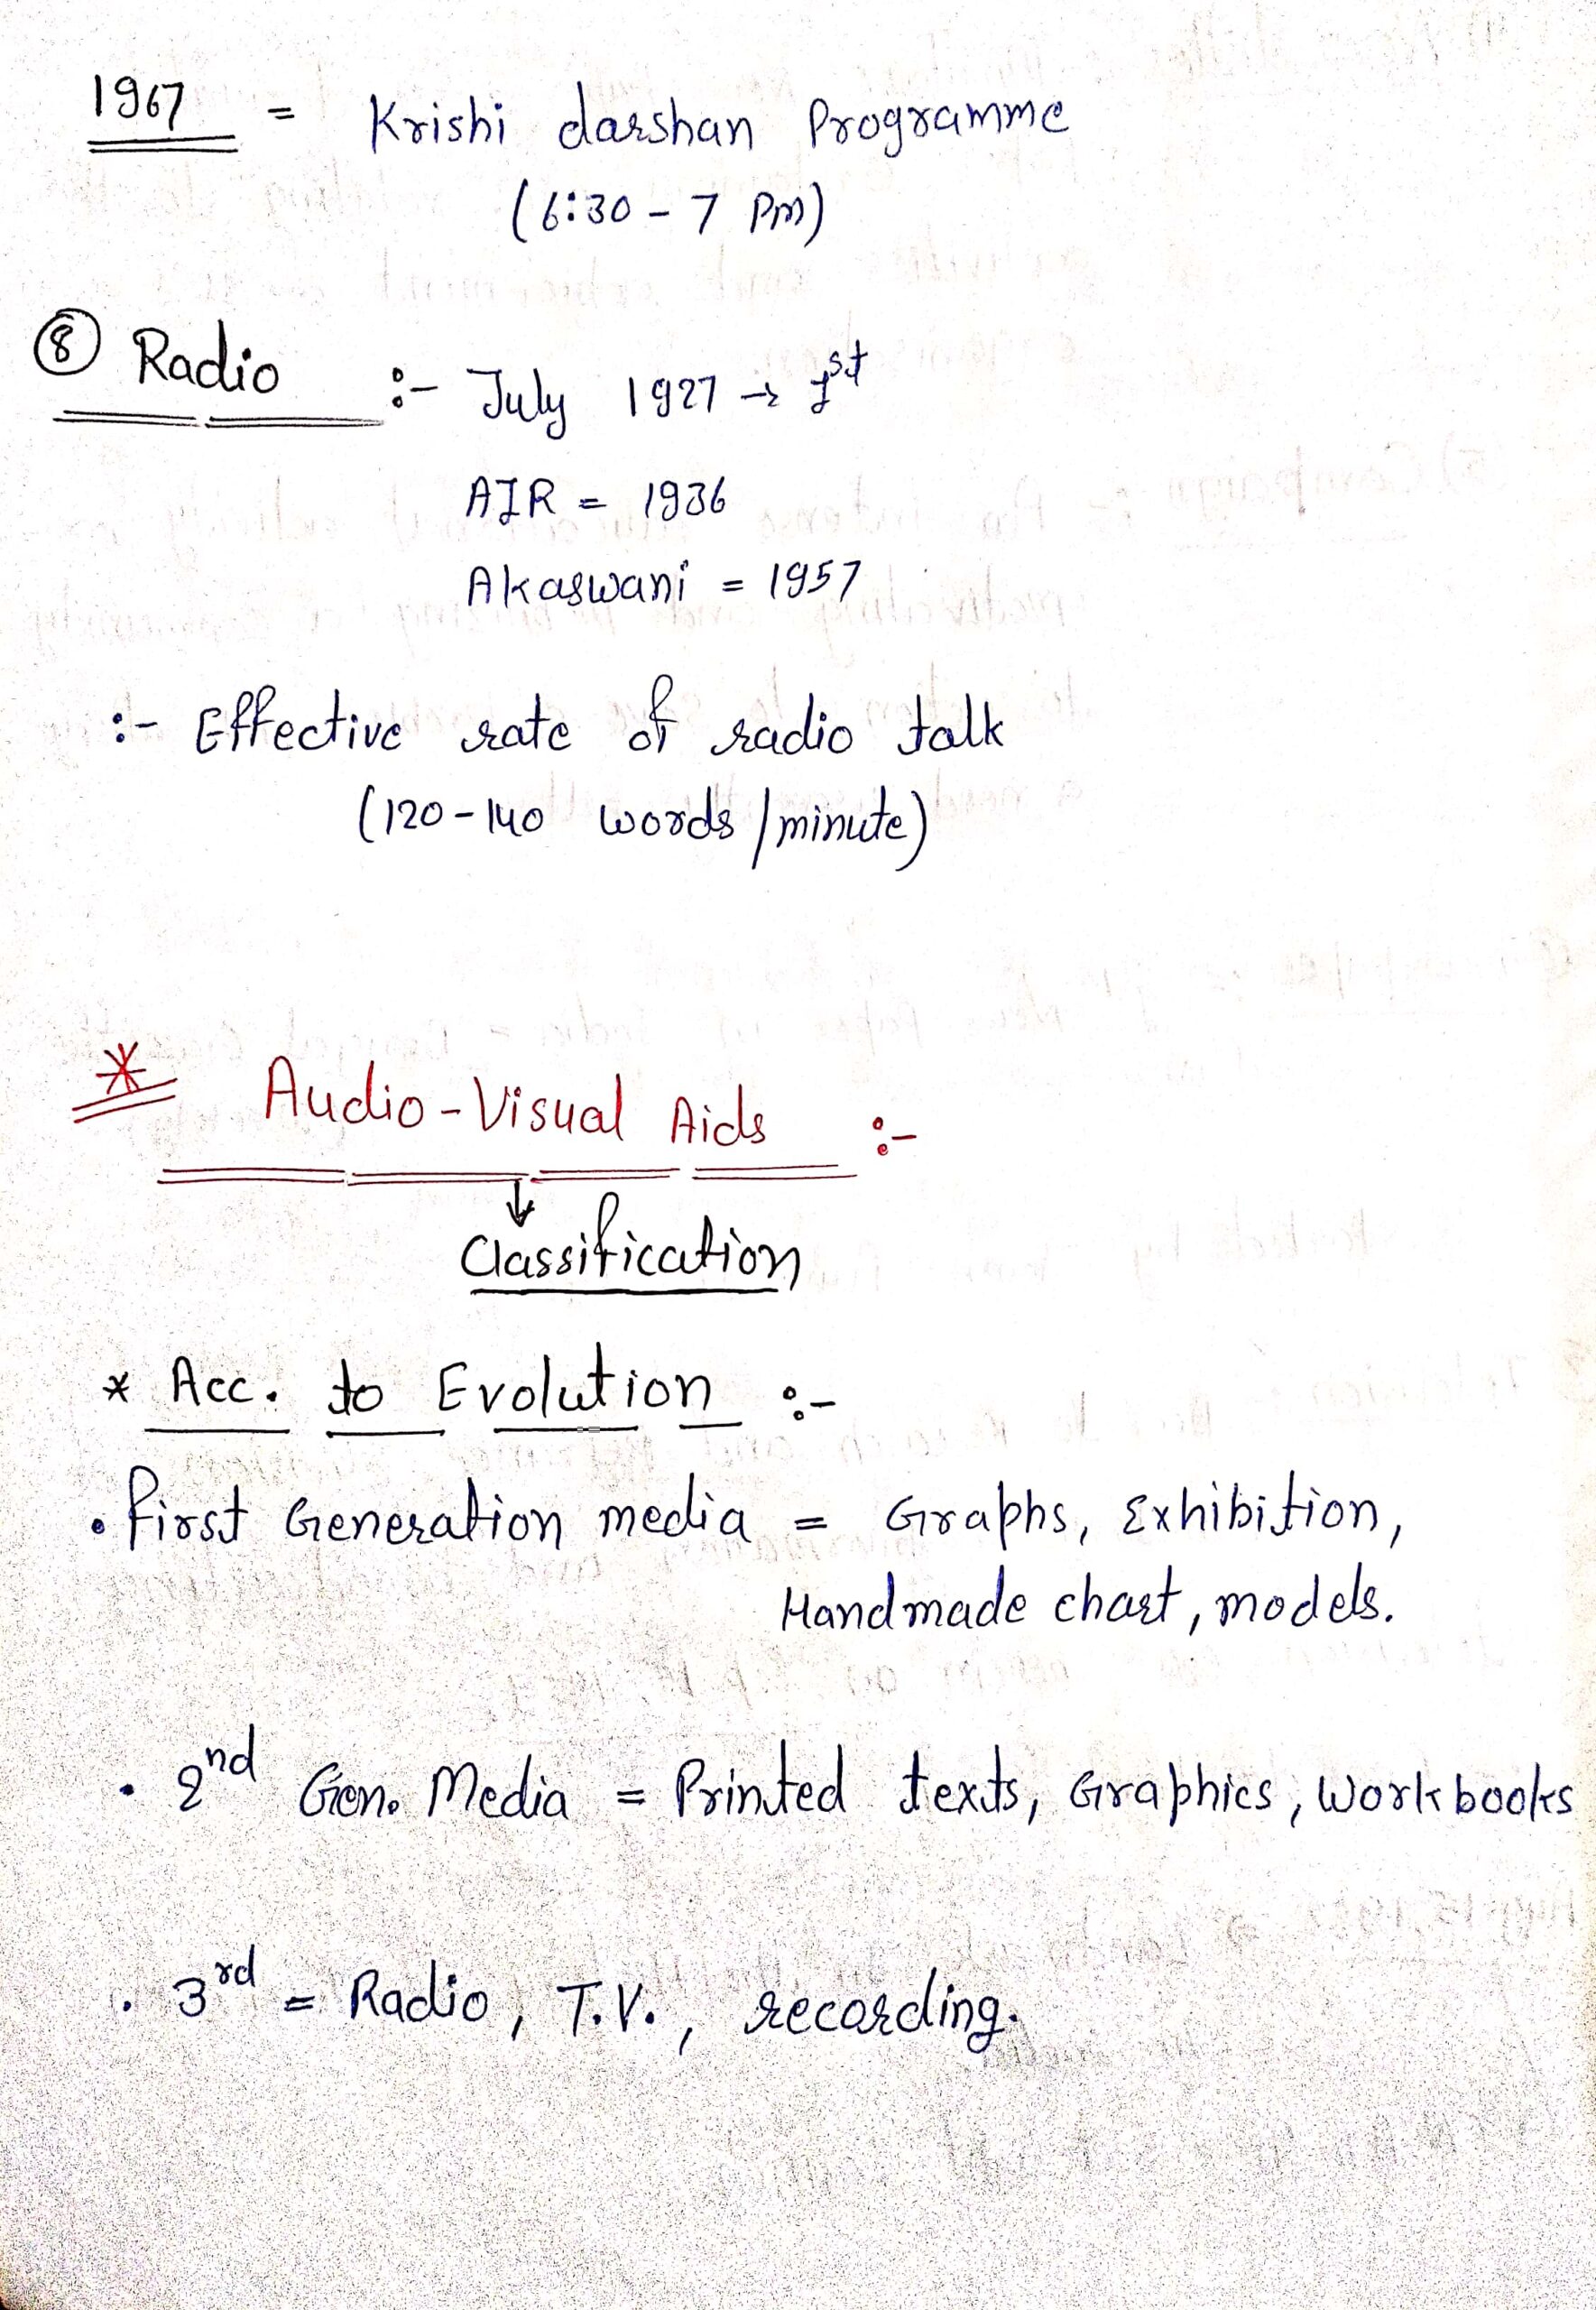 1967 = Krishi darshan Programme
(6:30 - 7 Pm)
⑧ Radio :- July 1927 → 1st
AIR = 1936
Akaswani = 1957
:- Effective rate of radio talk
(120-140 words/minute)
* Audio-Visual Aids :-
↓
Classification
* Acc. to Evolution :-
• First Generation media = Graphs, Exhibition,
Handmade chart, models.
• 2nd Gen. Media = Printed texts, Graphics, Workbooks
• 3rd = Radio, T.V., recording.